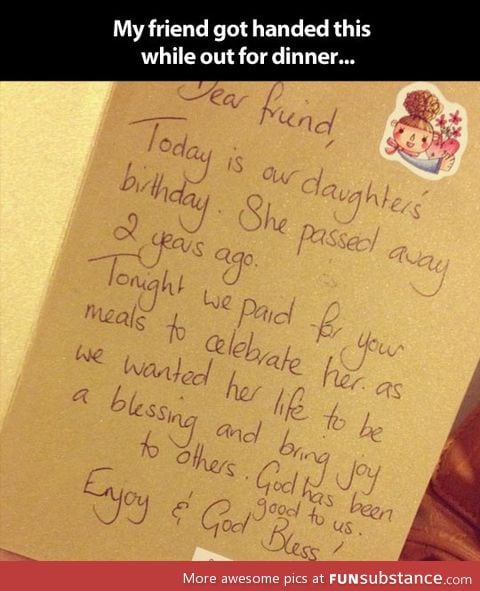 My friend got handed this
while out for dinner...
Dear friend,
Today is our daughters'
birthday. She passed away
2 years ago.
Tonight we paid for your
meals to celebrate her. as
we wanted her life to be
a blessing and bring joy
to others. God has been
good to us.
Enjoy & God Bless!
More awesome pics at FUNsubstance.com